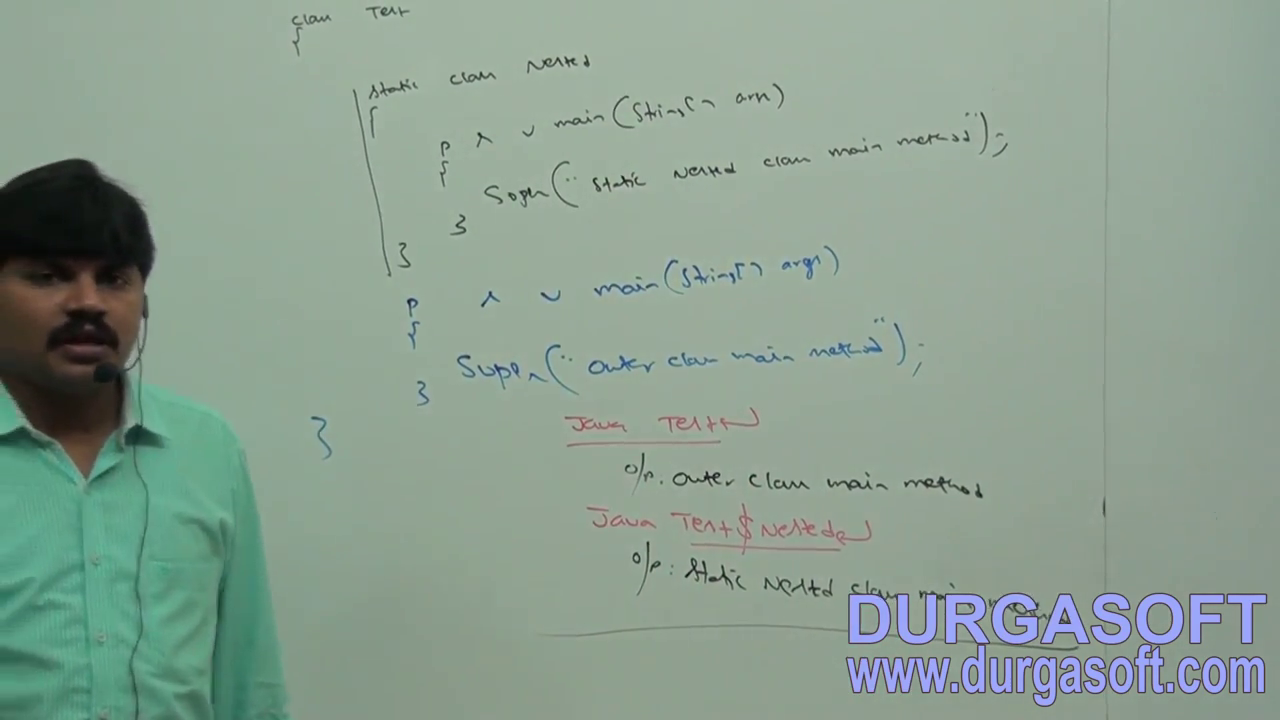 class Test
{
static class Nested
{
p s v main(String[] args)
{
Sopln("static Nested class main method");
}
}
p s v main(String[] args)
{
Sopln("outer class main method");
}
}
Java Test↵
o/p: outer class main method
Java Test$Nested↵
o/p: static Nested class main
DURGASOFT
www.durgasoft.com